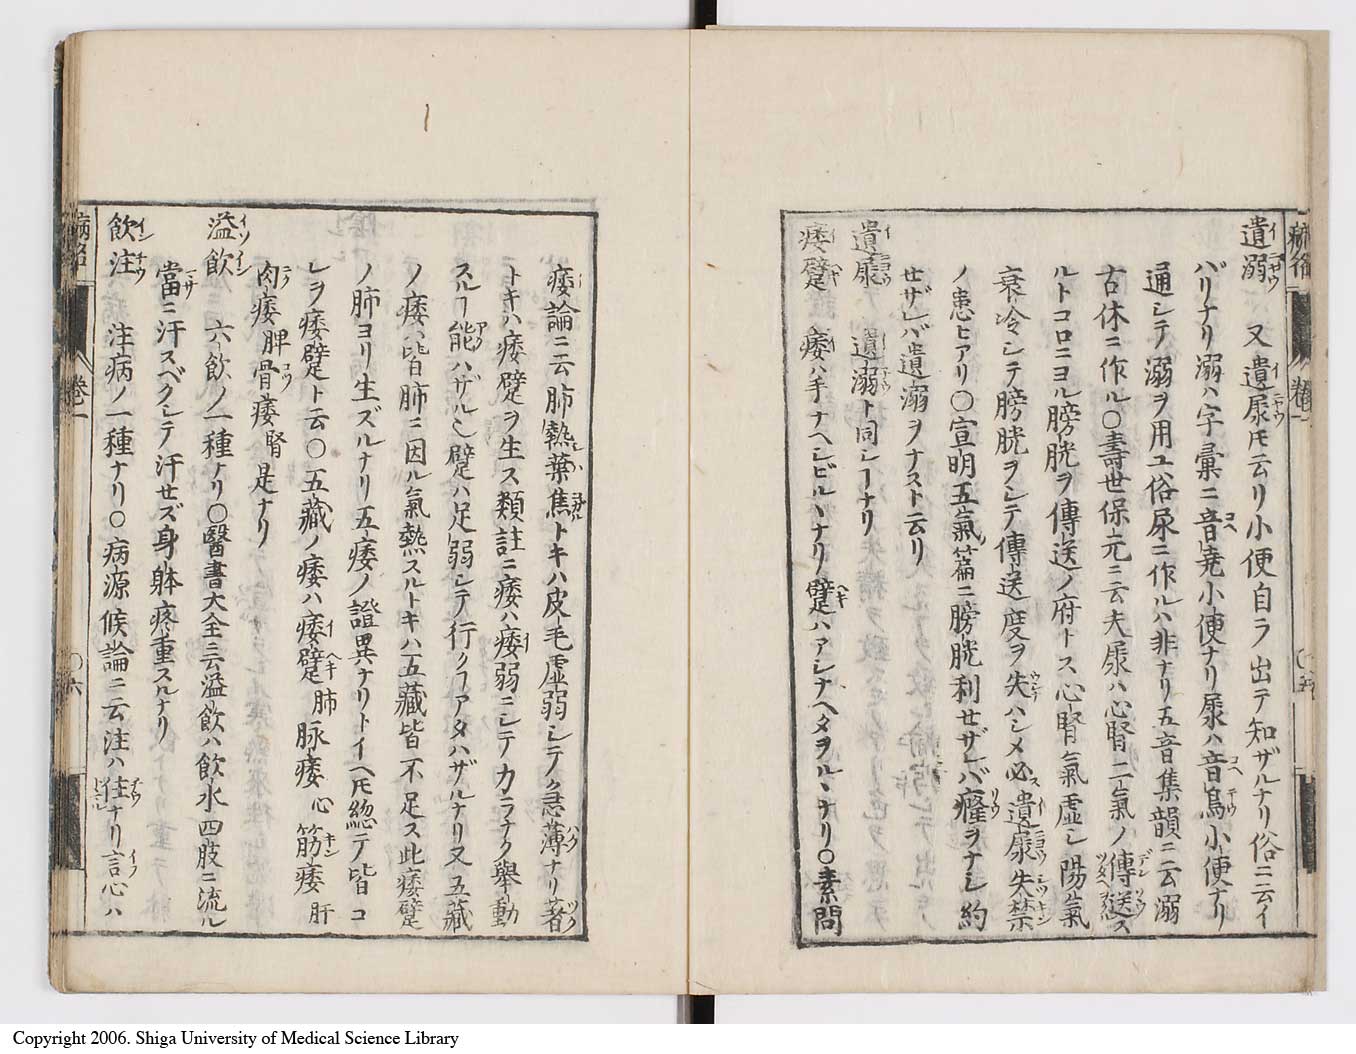 遺溺 又遺尿𪜈云リ小便自ラ出テ知ザルナリ俗ニ云イ
バリナリ溺ハ字彙ニ音堯小便ナリ尿ハ音鳥小便ナリ
通シテ溺ヲ用ユ俗尿ニ作ルハ非ナリ五音集韻ニ云溺
古休ニ作ル〇壽世保元ニ云夫尿ハ心腎二氣ノ傳送ス
ルトコロニヨル膀胱ヲ傳送ノ府トス心腎氣虚シ陽氣
衰冷シテ膀胱ヲシテ傳送度ヲ失ハシメ必遺尿失禁
ノ患ヒアリ〇宣明五氣篇ニ膀胱利セザレバ癃ヲナシ約
セザレバ遺溺ヲナスト云リ
遺尿 遺溺ト同シヿナリ
痿躄 痿ハ手ナヘシビルヽナリ躄ハアシナヘタヲルヽナリ〇素問
痿論ニ云肺熱葉焦トキハ皮毛虚弱シテ急薄ナリ著
トキハ痿躄ヲ生ス類註ニ痿ハ痿弱ニシテ力ラナク擧動
スルヿ能ハザルシ躄ハ足弱シテ行クヿアタハザルナリ又五藏
ノ痿ハ皆肺ニ因ル氣熱スルトキハ五藏皆不足ス此痿躄
ノ肺ヨリ生ズルナリ五痿ノ證異ナリトイヘ𪜈総テ皆コ
レヲ痿躄ト云〇五藏ノ痿ハ痿躄肺脉痿心筋痿肝
肉痿脾骨痿腎是ナリ
溢飲 六飲ノ一種ナリ〇醫書大全ニ云溢飲ハ飲水四肢ニ流ル
當ニ汗スベクシテ汗セズ身躰疼重スルナリ
飲注 注病ノ一種ナリ〇病源候論ニ云注ハ住ナリ言心ハ
卷一
〇六
Copyright 2006. Shiga University of Medical Science Library